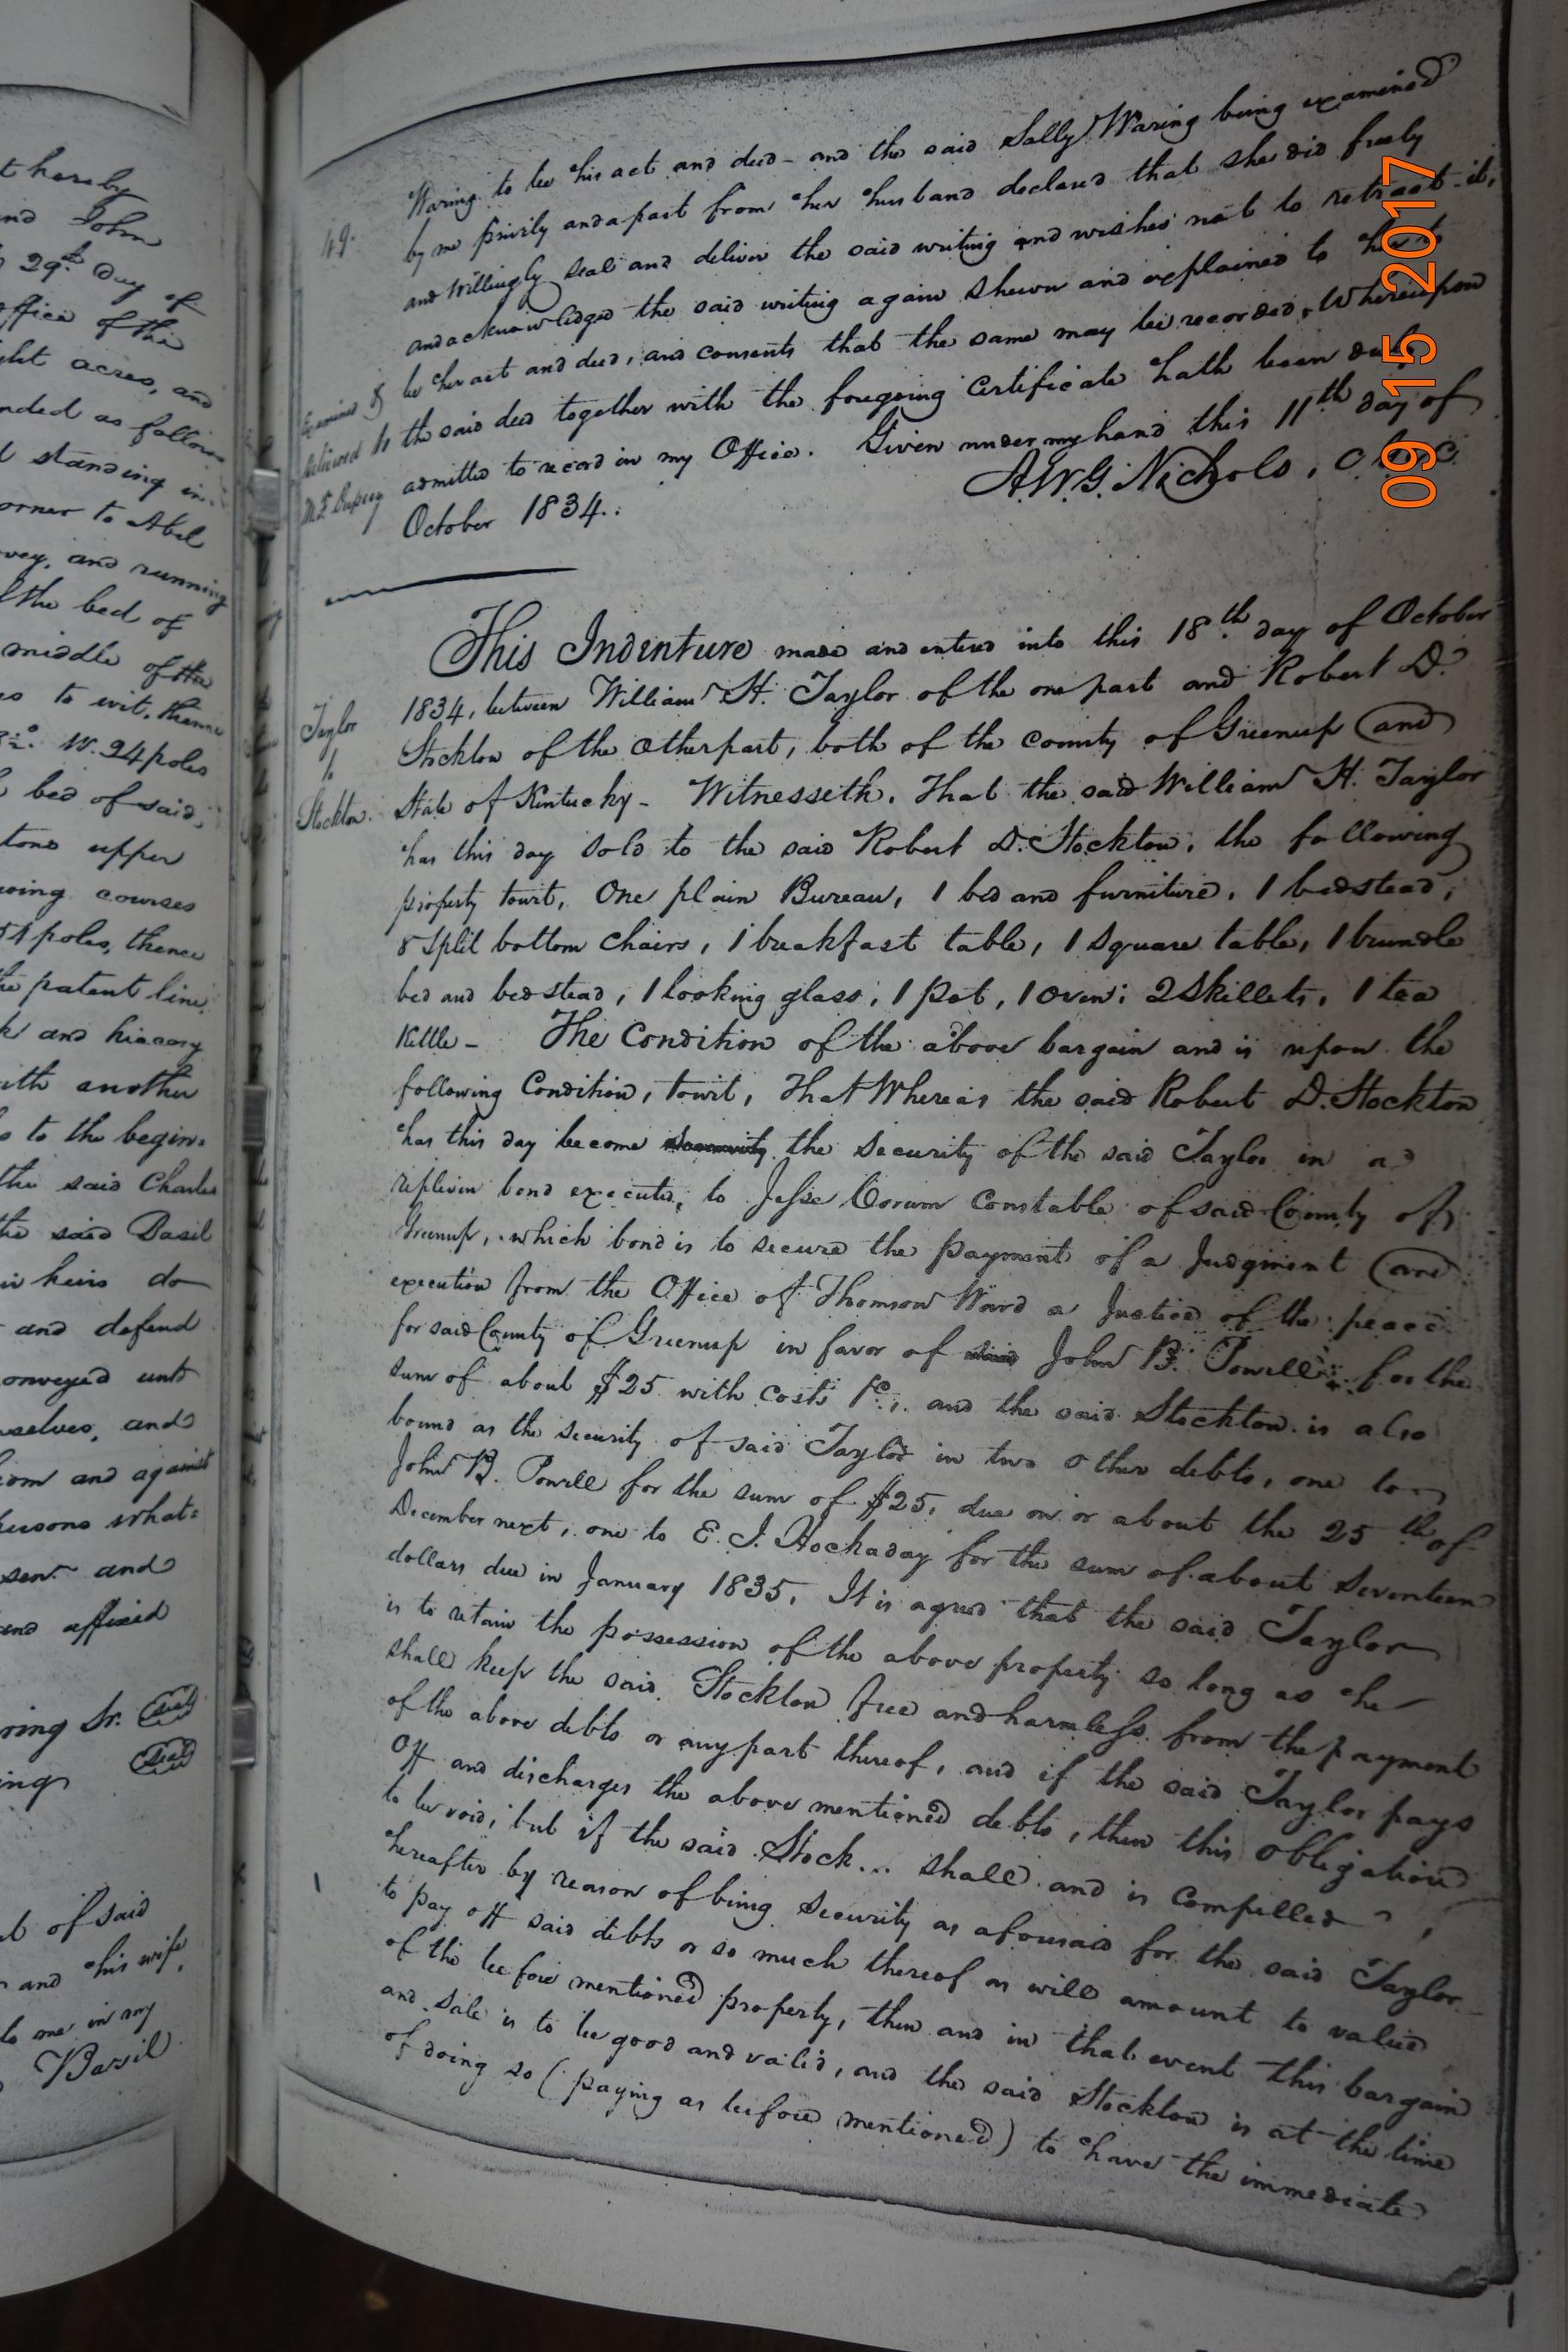 t hereby
and John
29th Day of
office of the
ight acres, and
nded as follow
d standing in
orner to Abel
vey, and running
f the bed of
middle of the
to wit, thence
W. 24 poles
bed of said
tone upper
wing courses
54 poles, thence
the patent line
k and hickory
with another
to the begin-
the said Charles
the said Basil
heirs do
and defend
onveyed unto
selves, and
iom and against
persons what=
and
and affixed
ring Sr. Seal
ing Seal
of said
and his wife
to me in my
Basil
49.
Waring to be his act and deed - and the said Sally Waring being examined
by me privily and apart from her husband declared that she did freely
and willingly seal and deliver the said writing and wishes not to retract it,
and acknowledged the said writing again shewn and explained to her to
be her act and deed, and consents that the same may be recorded, Whereupon
the said deed together with the foregoing certificate hath been duly
admitted to record in my Office. Given under my hand this 11th day of
October 1834.
A.W.G. Nichols,
Examined &
delivered to
09 15 2017
Taylor
to
Stockton.
This Indenture made and entered into this 18th day of October
1834, between William H. Taylor of the one part and Robert D.
Stockton of the other part, both of the county of Greenup and
State of Kentucky - Witnesseth. That the said William H. Taylor
has this day sold to the said Robert D. Stockton, the following
property towit, One plain Bureau, 1 bed and furniture, 1 bedstead,
8 split bottom chairs, 1 breakfast table, 1 square table, 1 trundle
bed and bedstead, 1 looking glass, 1 pot, 1 oven; 2 Skillets, 1 tea
Kettle - The Condition of the above bargain and is upon the
following Condition, towit, That Whereas the said Robert D. Stockton
has this day become security the security of the said Taylor in a
replevin bond executed, to Jesse Corum Constable of said County of
Greenup, which bond is to secure the payment of a Judgment and
execution from the Office of Thomson Ward a Justice of the peace
for said County of Greenup in favor of said John B. Powell for the
sum of about $25 with costs &c., and the said Stockton is also
bound as the security of said Taylor in two other debts, one to
John B. Powell for the sum of $25, due on or about the 25th of
December next, one to E. J. Hockaday for the sum of about Seventeen
dollars due in January 1835, It is agreed that the said Taylor
is to retain the possession of the above property so long as he
shall keep the said Stockton free and harmless from the payment
of the above debts or any part thereof, and if the said Taylor pays
off and discharges the above mentioned debts, then this obligation
to be void, but if the said Stock... shall and is compelled
hereafter by reason of being security as aforesaid for the said Taylor
to pay off said debts or so much thereof as will amount to value
of the before mentioned property, then and in that event this bargain
and sale is to be good and valid, and the said Stockton is at the time
of doing so (paying as before mentioned) to have the immediate